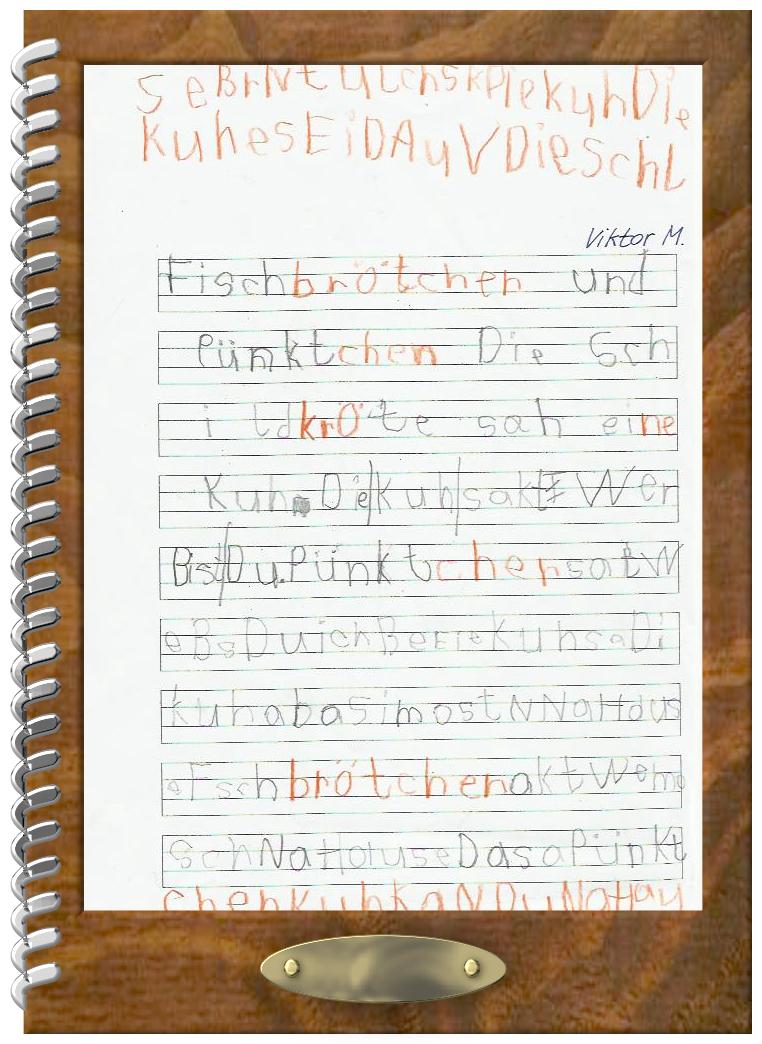 SeBrNtULchSKPIekuhDie
KuhesEiDAuVDieSchL
Viktor M.
Fischbrötchen und
Pünktchen Die Sch
ildkröte sah eine
Kuh. Die|Kuh|sakt Wer
Bist/Du. PünktchensatW
eBsDuichBeEieKuhsaDi
kuhabasimostNNaHaus
eFschbrötchenaktWeme
SchNaHauseDasaPünkt
chenkuhkaNDuNaHau